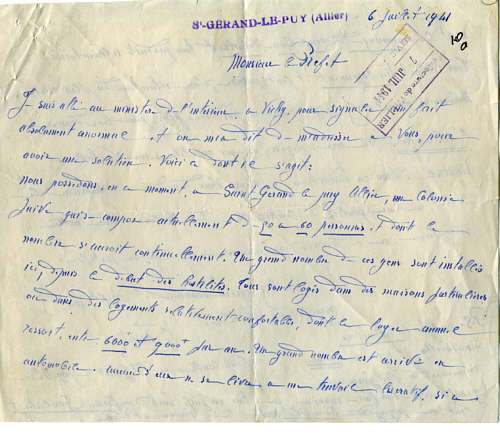 St-GERAND-LE-PUY (Allier) 6 juillet 1941
Monsieur le Préfet
7 JUIL 1941
Je suis allé au ministère de l'intérieur, à Vichy, pour signaler un fait
absolument anormal et on m'a dit de m'adresser à Vous, pour
avoir une solution. Voici ce dont il s'agit:
nous possédons, en ce moment, à Saint Gérand le puy Allier, une Colonie
Juive qui se compose actuellement de 50 à 60 personnes et dont le
nombre s'accroit continuellement. Un grand nombre de ces gens sont installés
ici, depuis le début des hostilités. Tous sont logés dans des maisons particulières
ou dans des logements relativement confortables, dont le loyer annuel
ressort, entre 6000f et 9000f par an. Un grand nombre est arrivé en
automobile. aucun d'eux ne se livre à un travail lucratif, si ce